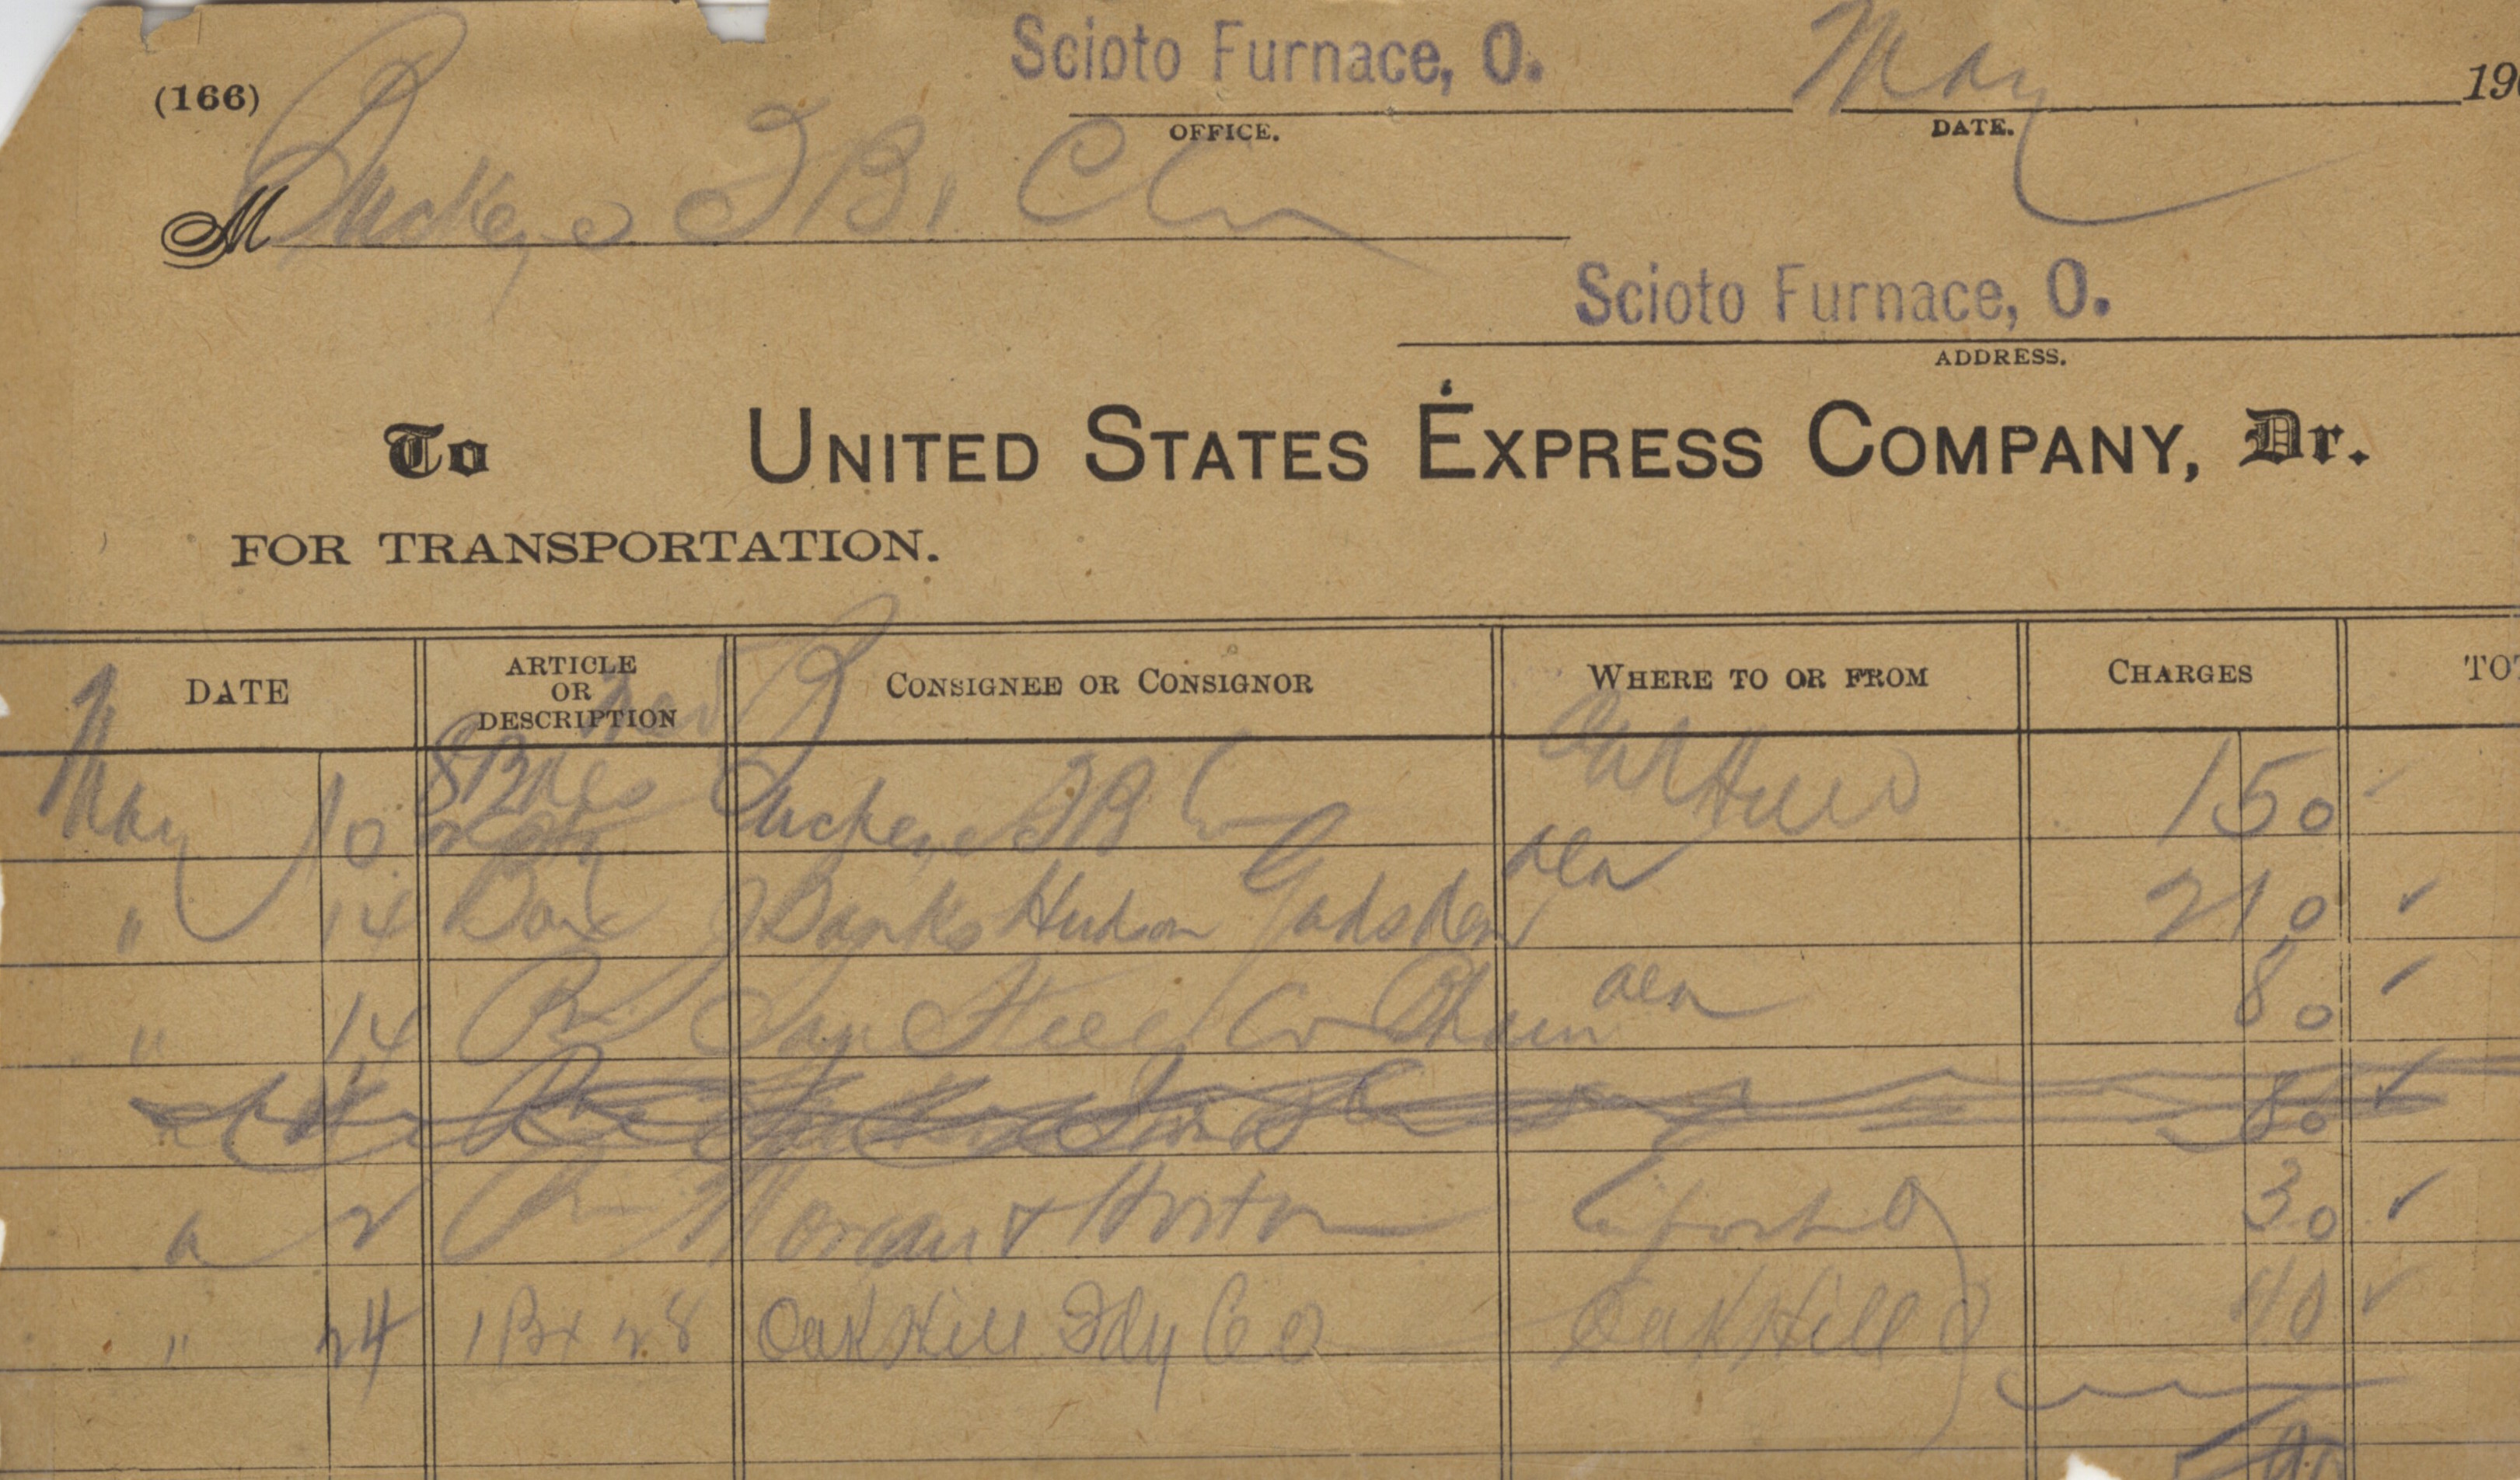 Scioto Furnace, O. May
(166) OFFICE. DATE. 190
M Buckeye F B. C
Scioto Furnace, O.
ADDRESS.
To UNITED STATES EXPRESS COMPANY, Dr.
FOR TRANSPORTATION.
DATE ARTICLE OR DESCRIPTION CONSIGNEE OR CONSIGNOR WHERE TO OR FROM CHARGES TOT
May 10 8 Bdles Buckeye F B Co Oak Hill O 1 50
" 14 Box J Banks Hudson Gadsden Ala 2 10 ✓
" 14 Bx Steel Co Bham Ala 80 ✓
80 ✓
2 Morgan & Horton 30 ✓
" 24 1 Bx 28 Oak Hill Fdy Co O Oak Hill O 40 ✓